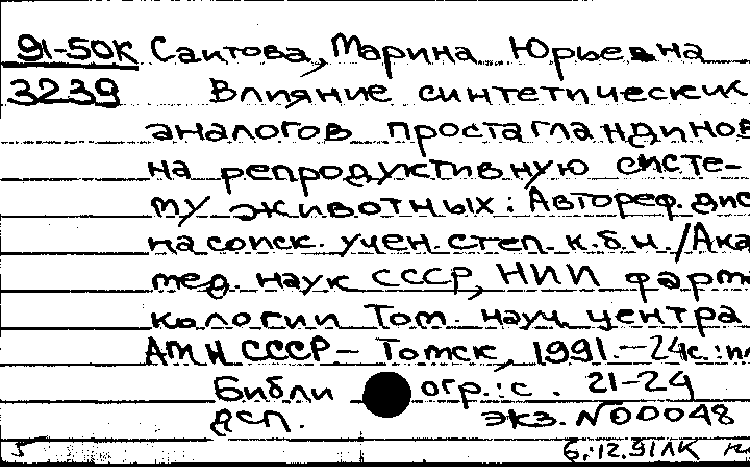 91-50К Саитова, Марина Юрьевна
3239 Влияние синтетических
аналогов простагландинов
на репродуктивную систе-
му животных: Автореф. дис
на соиск. учен. степ. к.б.н./Ака
мед. наук СССР, НИИ фарма
кологии Том. науч. центра
АМН СССР.- Томск, 1991.-24с.:ил
Библиогр.: с. 21-24
ДСП. экз. N00048
6.12.91 ЛК